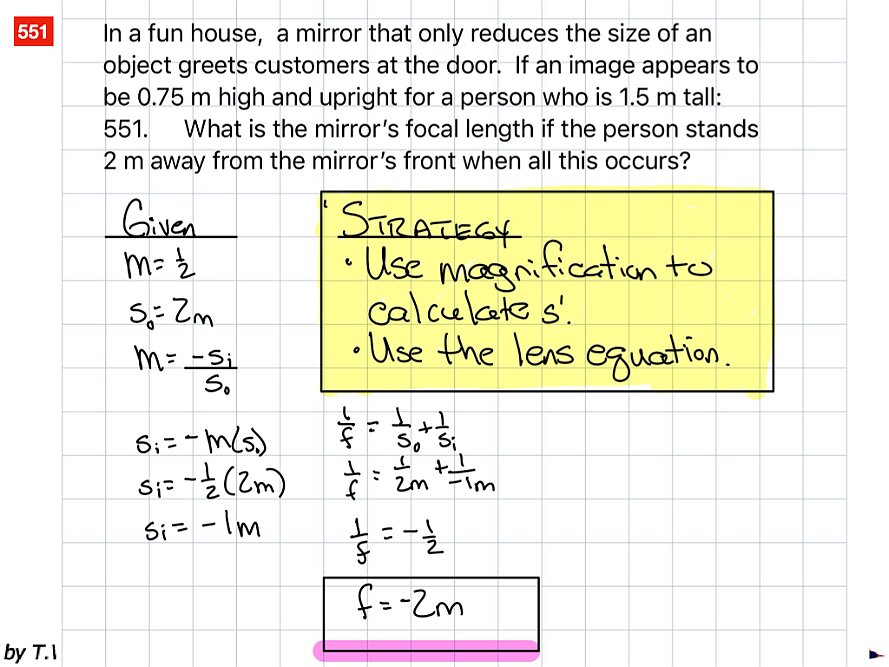 551
In a fun house, a mirror that only reduces the size of an
object greets customers at the door. If an image appears to
be 0.75 m high and upright for a person who is 1.5 m tall:
551. What is the mirror's focal length if the person stands
2 m away from the mirror's front when all this occurs?
Given
m = 1/2
s₀ = 2m
m = -sᵢ/s₀
sᵢ = -m(s₀)
sᵢ = -1/2 (2m)
sᵢ = -1m
STRATEGY
• Use magnification to
calculate s'.
• Use the lens equation.
1/f = 1/s₀ + 1/sᵢ
1/f = 1/2m + 1/-1m
1/f = -1/2
f = -2m
by T.